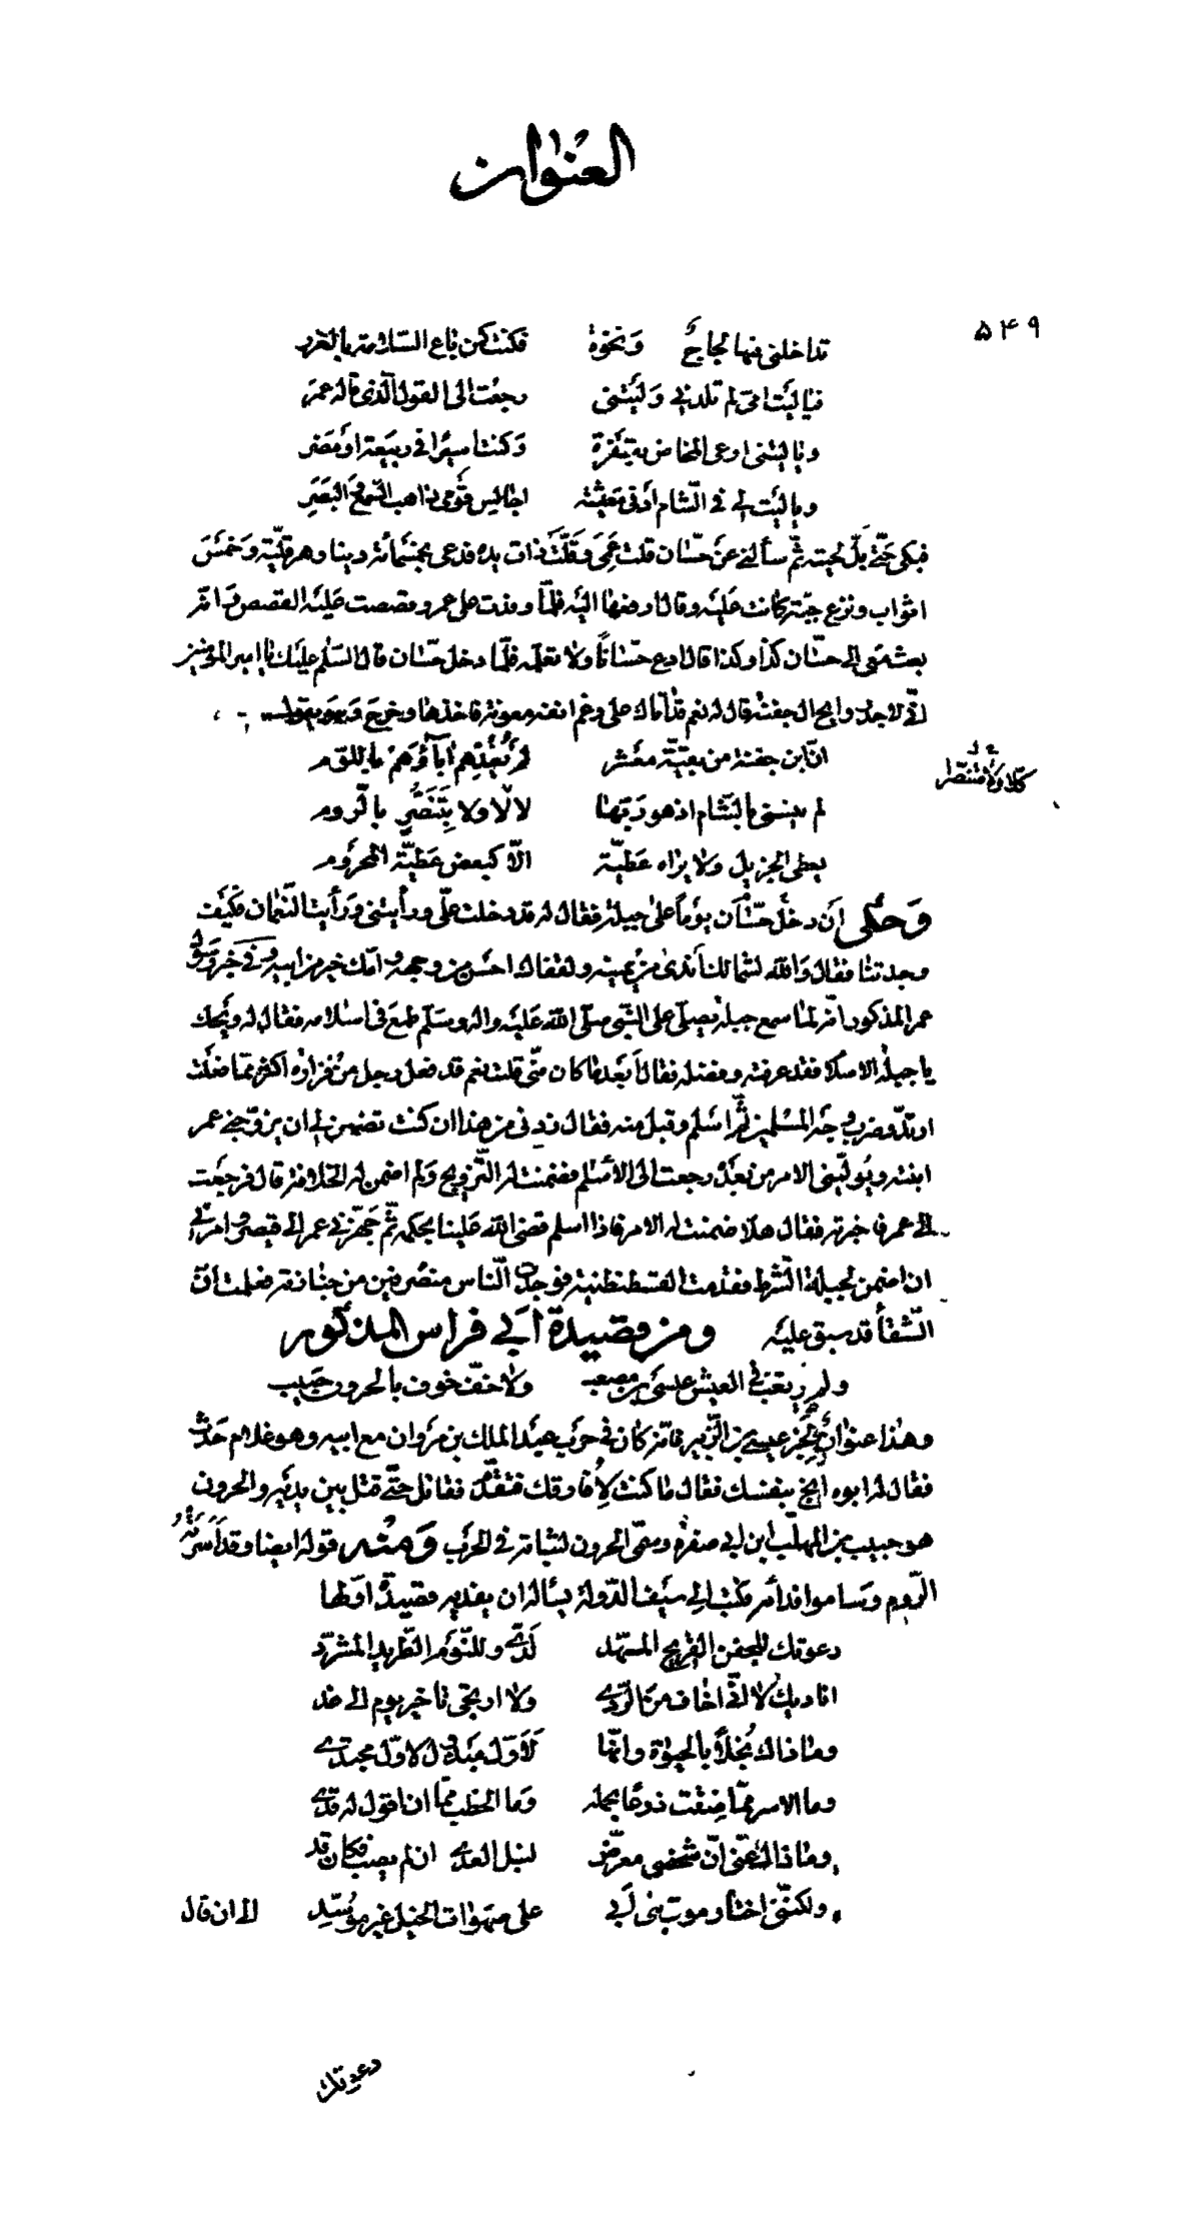 العنوان
٥٤٩
تداخلنى فيها لجاج ونخوة فكنت كمن باع السلامة بالغرر
فيا ليت امى لم تلدنى وليتنى رجعت الى القول الذى قاله عمر
ويا ليتنى ارعى المخاض بقفرة وكنت اسيرا فى ربيعة او مضر
ويا ليت لى فى الشام ادنى معيشة اجالس قومى ذاهب السمع والبصر
فبكى حتى بل لحيته ثم سألنى عن حسان قلت عمى وقلت ذات يده فدعى بخمسمائة دينار هرقلية وخمس
اثواب ونزع جبة كانت عليه وقال ادفعها اليه فلما وفدت على عمر وقصصت عليه القصص وانه
بعث معى الى حسان كذا وكذا قال ادع حسانا ولا تعلمه فلما دخل حسان قال السلم عليك يا امير المؤمنين
انى لاجد روايح ال جفنة قال له نعم قد اتاك على رغم انفه معونة فاخذها وخرج وهو يقول
ان ابن جفنة من بقية معشر لم يغذهم آباؤهم باللوم
لم ينسنى بالشام اذ هو ربها لا لا ولا يتنصر بالروم
كلا ولا متنصرا
يعطى الجزيل ولا يراه عطية الا كبعض عطية المحروم
وحكى ان دخل حسان يوما على جبلة فقال له قد دخلت على ورأيتنى ورأيت النعمان فكيف
وجدتنا فقال والله لشمالك اندى من يمينه ولقفاك احسن من وجهه وامك خير من ابيه وفى خبر رسول
عمر المذكور انه لما سمع جبلة يصلى على النبى صلى الله عليه واله وسلم طمع فى اسلامه فقال له ويحك
يا جبلة الاسلام فقد عرفته وفضله فقال ابعد ما كان منى قلت نعم قد فعل رجل من فزارة اكثر مما فعلت
ارتد وضرب وجه المسلمين ثم اسلم وقبل منه فقال زدنى من هذا ان كنت تضمن لى ان يزوجنى عمر
ابنته ويولينى الامر من بعده رجعت الى الاسلم فضمنت له التزويج ولم اضمن له الخلافة قال فرجعت
الى عمر فاخبرته فقال هلا ضمنت له الامر فاذا اسلم قضى الله علينا بحكمه ثم جهزنى عمر الى قيصر وامرنى
ان اضمن لجبلة الشرط فقدمت القسطنطنية فوجدت الناس منصرفين من جنازته فعلمت ان
الشقأ قد سبق عليه ومن قصيدة ابى فراس المذكور
ولم يرتغب فى العيش عيسى بن مصعب ولا خف خوف بالحرون حبيب
وهذا عنوان خبر عيسى بن الزبير فانه كان فى حرب عبد الملك بن مروان مع ابيه وهو غلام حدث
فقال له ابوه انج بنفسك فقال ما كنت لأفارقك فتقدم فقاتل حتى قتل بين يديه والحرون
هو حبيب بن المهلب ابن ابى صفرة وسمى الحرون لثباته فى الحرب ومنه قوله ايضا وقد اسرته
الروم وساموا فدائه فكتب الى سيف الدولة يسأله ان يفديه قصيدة اولها
دعوتك للجفن القريح المسهد لدى وللنوم الطريد المشرد
اناديك لا انى اخاف من الردى ولا ارتجى تاخير يوم الى غد
وما ذاك بخلا بالحيوة وانها لاول مبذول لاول مجتدى
وما الاسر مما ضقت ذرعا بحمله وما الخطب مما ان اقول له قدى
وما ذاك عنى ان شخصى معرض لنبل العدى ان لم يصب فكان قد
ولكننى اختار موت بنى ابى على صهوات الخيل غير موسد الى ان قال
دعوتك